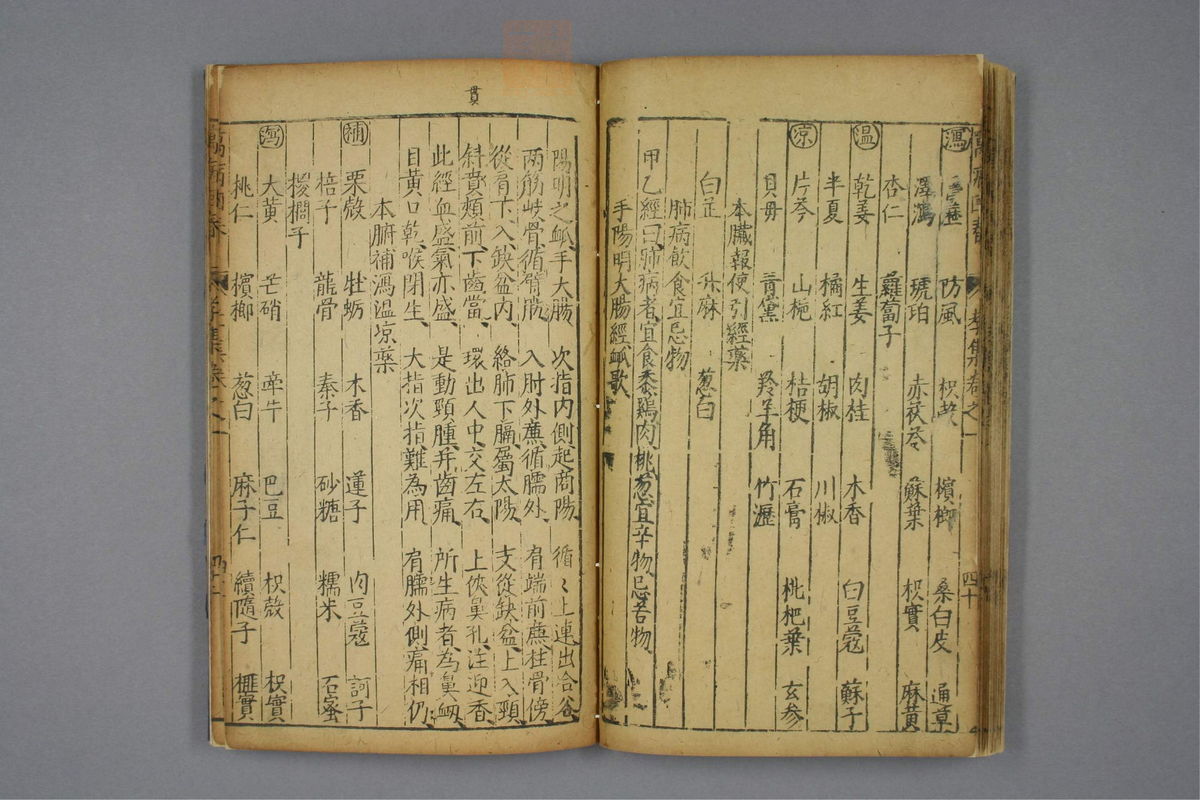 瀉 葶藶 防風 枳殼 檳榔 桑白皮 通草
澤瀉 琥珀 赤茯苓 蘇葉 枳實 麻黃
杏仁 蘿蔔子
溫 乾姜 生姜 肉桂 木香 白豆蔻 蘇子
半夏 橘紅 胡椒 川椒
凉 片芩 山梔 桔梗 石膏 枇杷葉 玄參
貝母 青黛 羚羊角 竹瀝
本臟報使引經藥
白芷 升麻 葱白
肺病飲食宜忌物
甲乙經曰肺病者宜食黍鷄肉桃葱宜辛物忌苦物
手陽明大腸經脉歌
陽明之脉手大腸 次指内側起商陽 循〻上連出合谷
兩筋岐骨循臂膓 入肘外廉循臑外 肩端前廉柱骨傍
從肩下入缺盆内 絡肺下膈屬太陽 支從缺盆上入頸
斜貫頰前下齒當 環出人中交左右 上俠鼻孔注迎香
此經血盛氣亦盛 是動頸腫并齒痛 所生病者為鼻衄
目黃口乾喉閉生 大指次指難為用 肩臑外側痛相仍
本腑補瀉溫凉藥
補 粟殼 牡蛎 木香 蓮子 肉豆蔻 訶子
棓子 龍骨 秦子 砂糖 糯米 石蜜
椶櫚子
瀉 大黃 芒硝 牽牛 巴豆 枳殼 枳實
桃仁 檳榔 葱白 麻子仁 續隨子 榧實
萬病回春 孝集卷之一 四十
貫